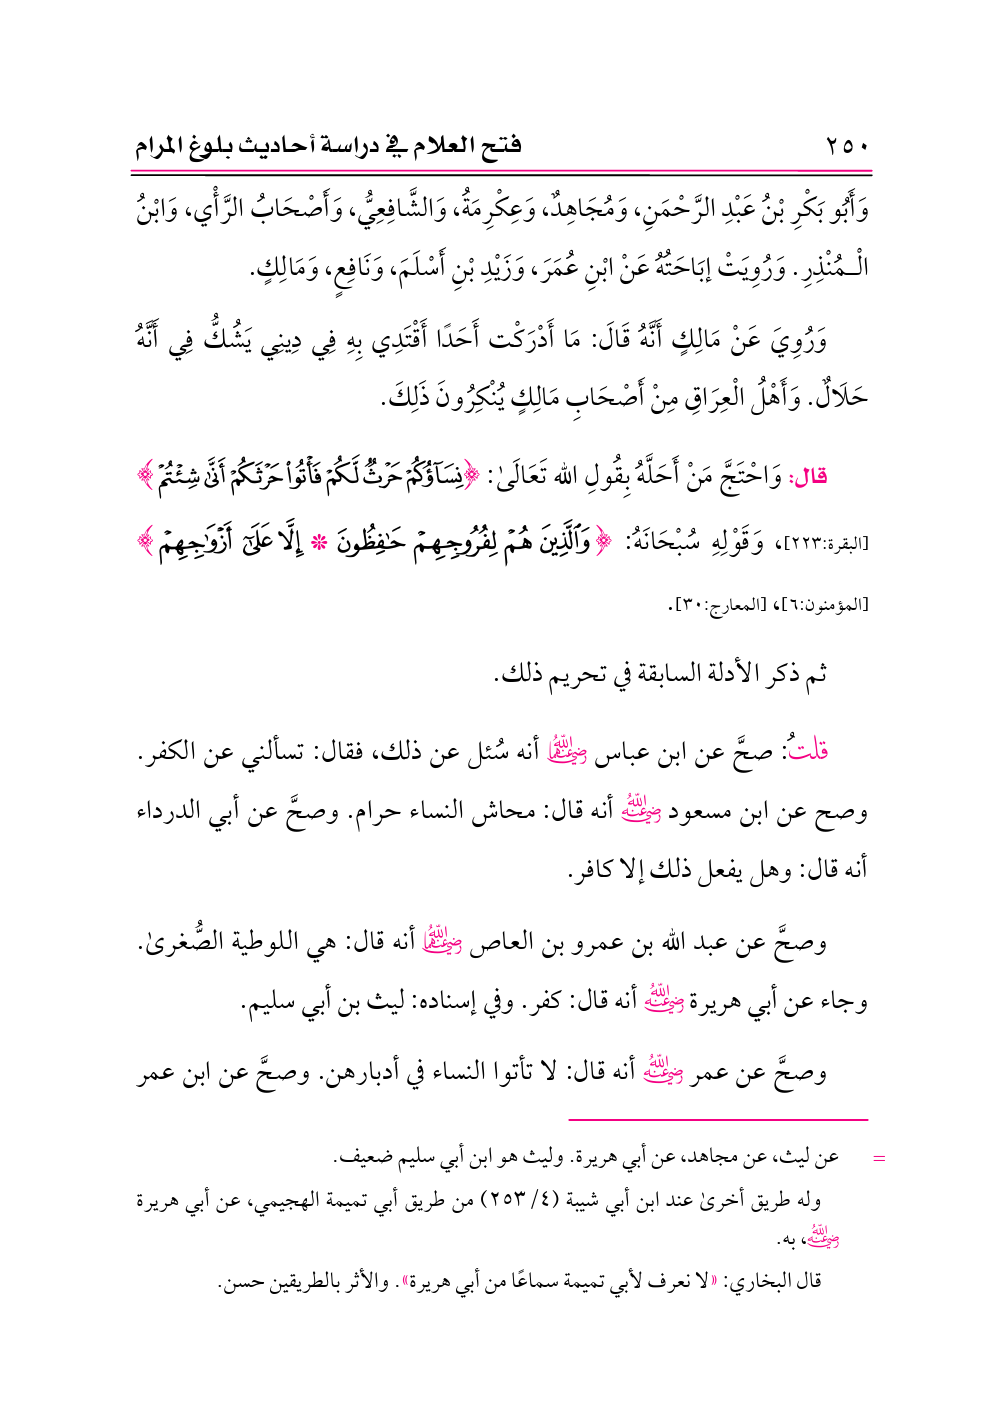 ٢٥٠ فتح العلام في دراسة أحاديث بلوغ المرام
وَأَبُو بَكْرِ بْنُ عَبْدِ الرَّحْمَنِ، وَمُجَاهِدٌ، وَعِكْرِمَةُ، وَالشَّافِعِيُّ، وَأَصْحَابُ الرَّأْيِ، وَابْنُ
الْـمُنْذِرِ. وَرُوِيَتْ إبَاحَتُهُ عَنْ ابْنِ عُمَرَ، وَزَيْدِ بْنِ أَسْلَمَ، وَنَافِعٍ، وَمَالِكٍ.
وَرُوِيَ عَنْ مَالِكٍ أَنَّهُ قَالَ: مَا أَدْرَكْت أَحَدًا أَقْتَدِي بِهِ فِي دِينِي يَشُكُّ فِي أَنَّهُ
حَلَالٌ. وَأَهْلُ الْعِرَاقِ مِنْ أَصْحَابِ مَالِكٍ يُنْكِرُونَ ذَلِكَ.
قال: وَاحْتَجَّ مَنْ أَحَلَّهُ بِقُولِ الله تَعَالَىٰ: ﴿نِسَآؤُكُمۡ حَرۡثٞ لَّكُمۡ فَأۡتُواْ حَرۡثَكُمۡ أَنَّىٰ شِئۡتُمۡ﴾
[البقرة:٢٢٣]، وَقَوْلِهِ سُبْحَانَهُ: ﴿وَٱلَّذِينَ هُمۡ لِفُرُوجِهِمۡ حَٰفِظُونَ * إِلَّا عَلَىٰٓ أَزۡوَٰجِهِمۡ﴾
[المؤمنون:٦]، [المعارج:٣٠].
ثم ذكر الأدلة السابقة في تحريم ذلك.
قلتُ: صحَّ عن ابن عباس رضي الله عنهما أنه سُئل عن ذلك، فقال: تسألني عن الكفر.
وصح عن ابن مسعود رضي الله عنه أنه قال: محاش النساء حرام. وصحَّ عن أبي الدرداء
أنه قال: وهل يفعل ذلك إلا كافر.
وصحَّ عن عبد الله بن عمرو بن العاص رضي الله عنهما أنه قال: هي اللوطية الصُّغرىٰ.
وجاء عن أبي هريرة رضي الله عنه أنه قال: كفر. وفي إسناده: ليث بن أبي سليم.
وصحَّ عن عمر رضي الله عنه أنه قال: لا تأتوا النساء في أدبارهن. وصحَّ عن ابن عمر
= عن ليث، عن مجاهد، عن أبي هريرة. وليث هو ابن أبي سليم ضعيف.
وله طريق أخرىٰ عند ابن أبي شيبة (٤/ ٢٥٣) من طريق أبي تميمة الهجيمي، عن أبي هريرة
رضي الله عنه، به.
قال البخاري: «لا نعرف لأبي تميمة سماعًا من أبي هريرة». والأثر بالطريقين حسن.